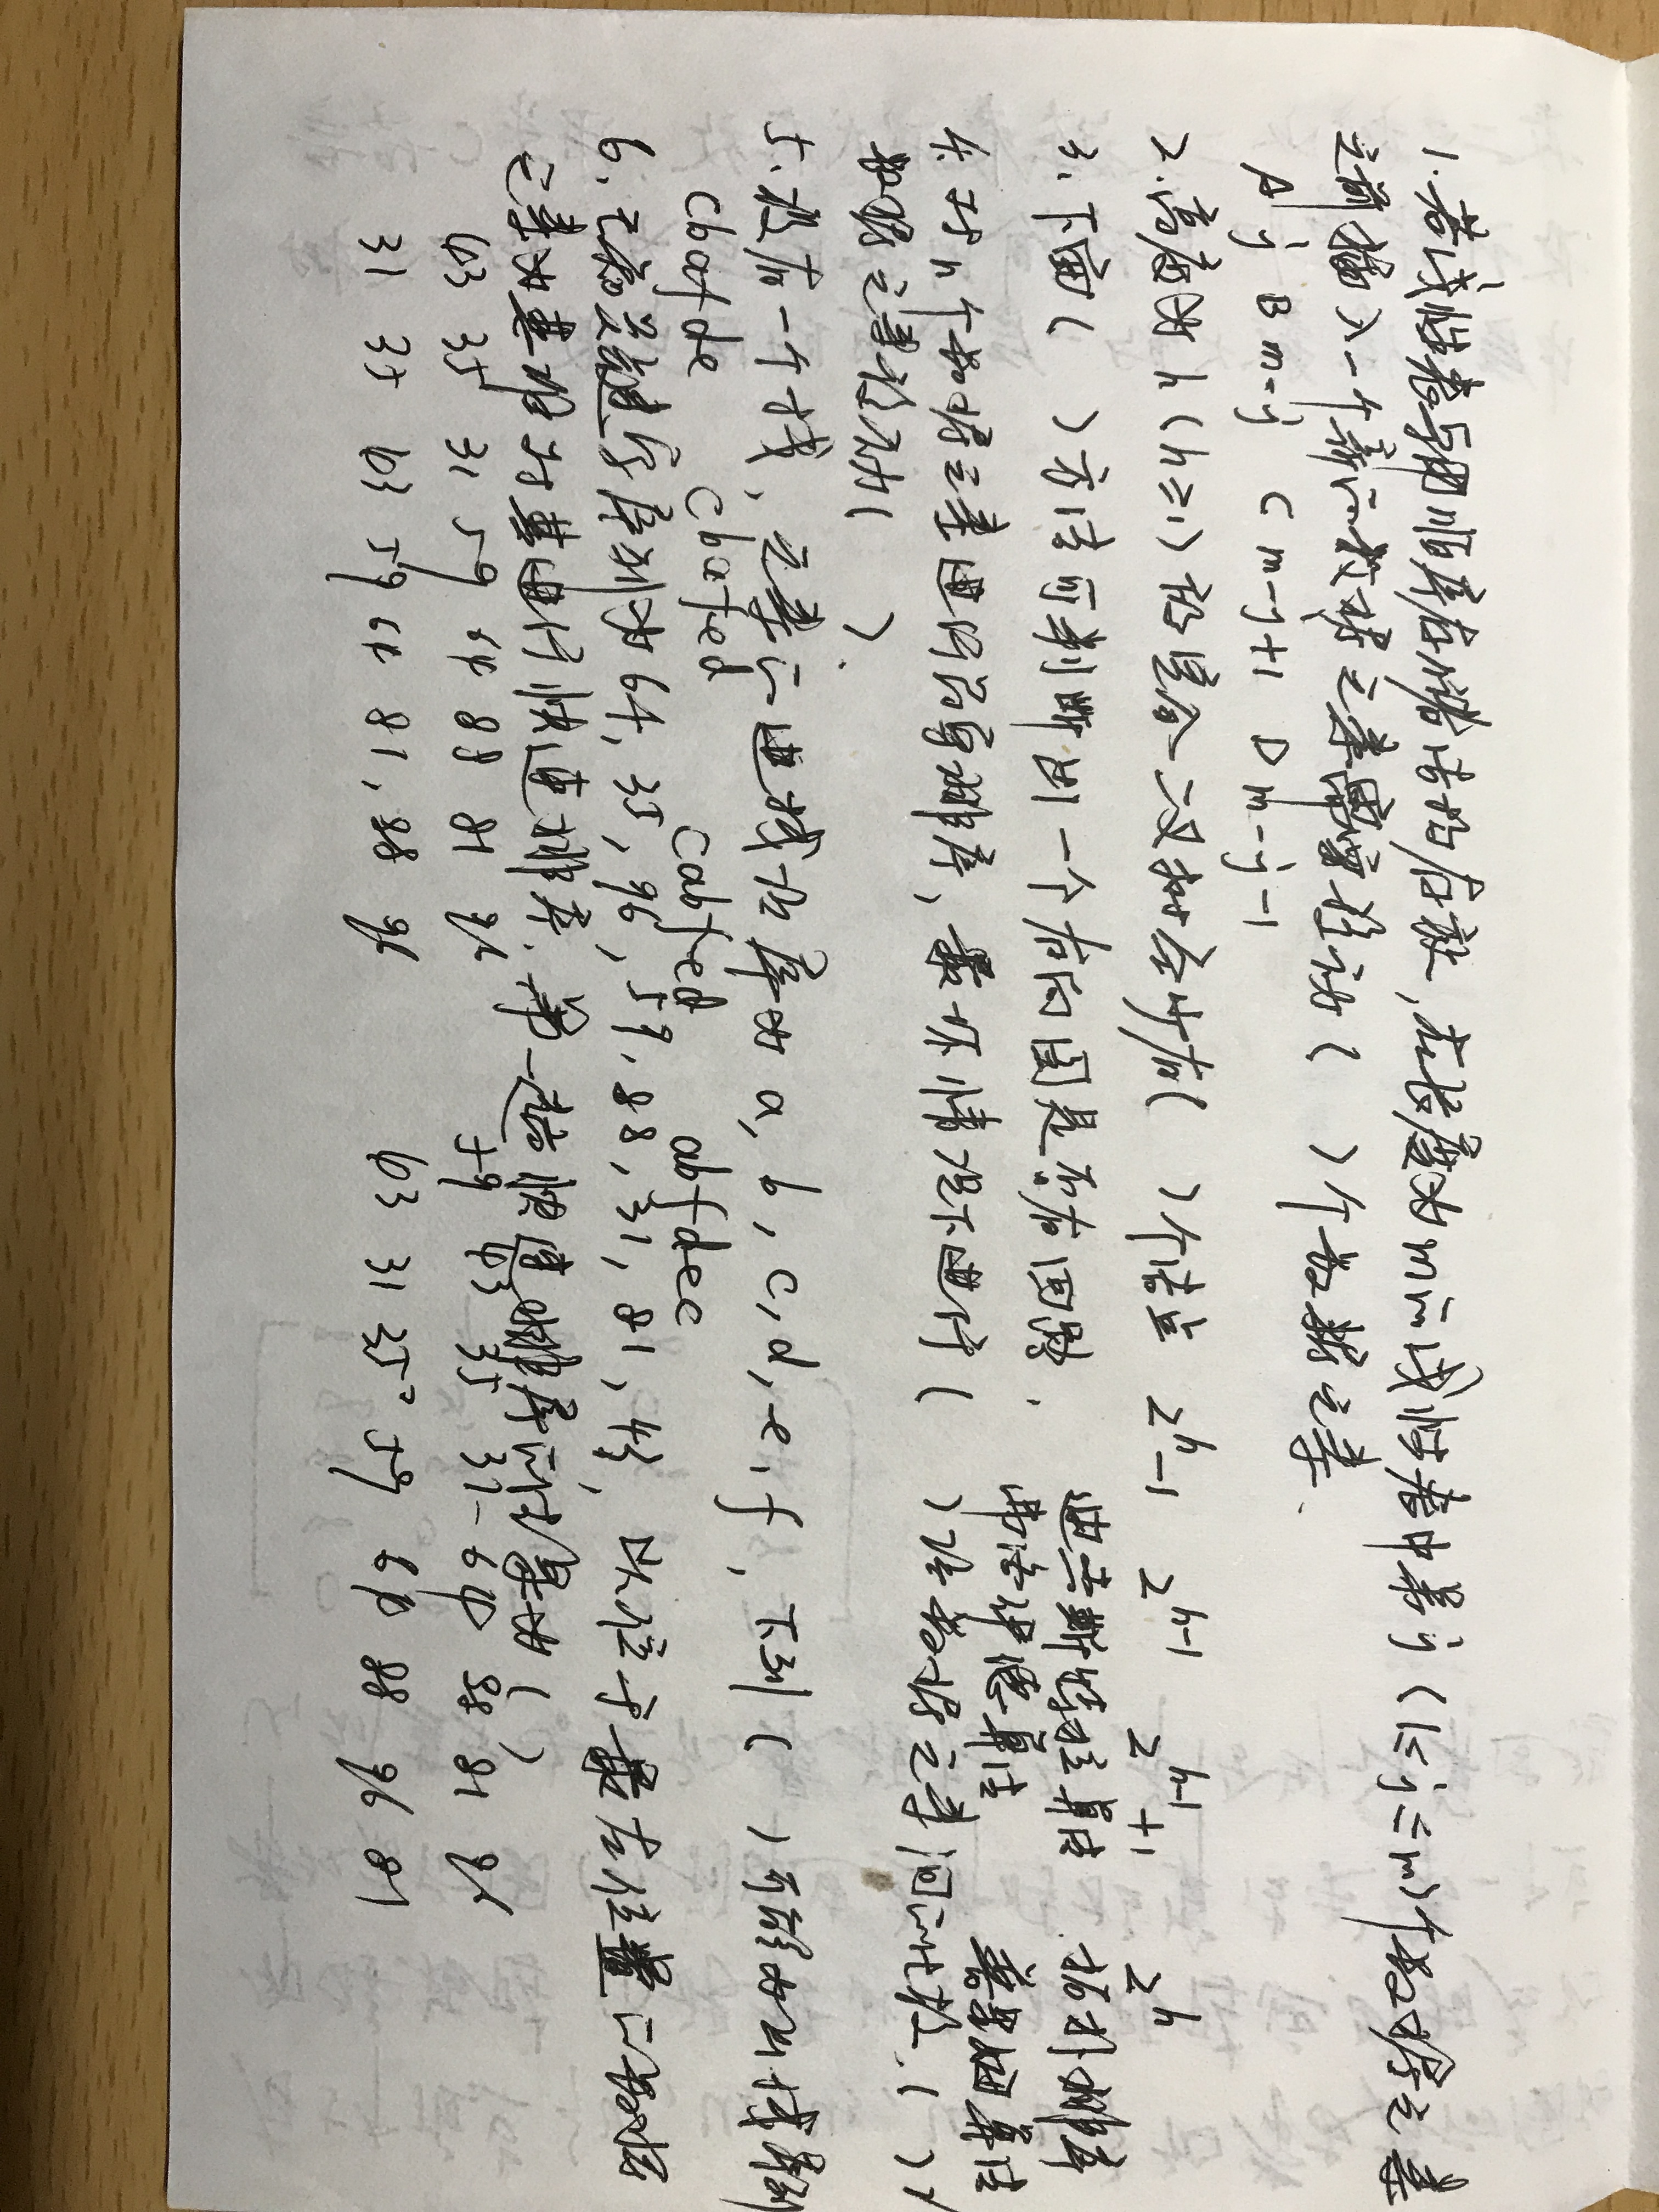 1.若线性表采用顺序存储结构存放,在长度为m的线性表中第j(1≤j≤m)个数据元素
之前插入一个新的数据元素需要移动( )个数据元素.
A j B m-j C m-j+1 D m-j-1
2.高度为h(h≥1)的完全二叉树至少有( )个结点 2^h-1 2^(h-1) 2^(h-1)+1 2^h
3、下面( )方法可判断出一个有向图是否有回路, 迪杰斯特拉算法 拓扑排序
弗洛伊德算法 普里姆算法
4.对n个数据元素进行冒泡排序,最坏情况下进行( )次数据元素间的比较,( )次
数据元素移动( ).
5、设有一个栈,元素的进栈次序为a,b,c,d,e,f,下列( )可能为出栈序列
cbafde cbafed cabfed abfdec
6、已知关键字序列为64,35,96,59,88,31,81,43,以位于最左位置的数据
元素为基准对其进行快速排序,第一趟快速排序的结果为( )
43 35 31 59 64 88 81 96 59 43 35 31-64 88 81 96
31 35 43 59 64 81,88 96 43 31 35 59 64 88 96 81